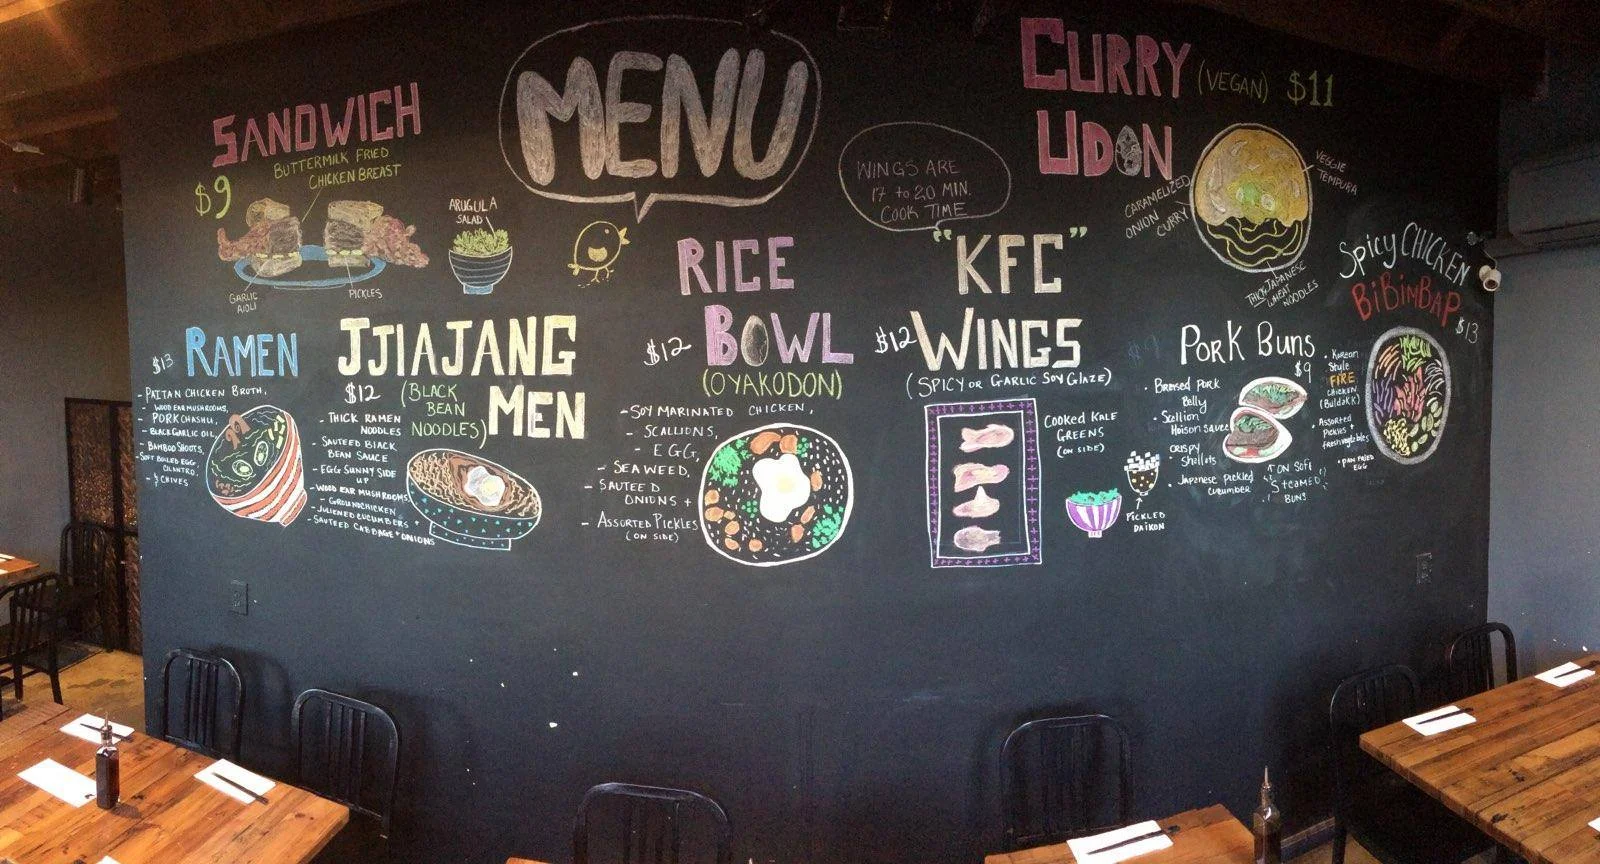 MENU
SANDWICH
$9
BUTTERMILK FRIED
CHICKEN BREAST
ARUGULA
SALAD
GARLIC
AIOLI
PICKLES
WINGS ARE
17 to 20 MIN.
COOK TIME
CURRY (VEGAN) $11
UDON
VEGGIE
TEMPURA
CARAMELIZED
ONION CURRY
THICK JAPANESE
WHEAT
NOODLES
$13 RAMEN
- PAITAN CHICKEN BROTH,
- WOOD EAR MUSHROOMS,
- PORK CHASHU,
- BLACK GARLIC OIL,
- BAMBOO SHOOTS,
- SOFT BOILED EGG,
CILANTRO,
- CHIVES
JJIAJANG
MEN
$12 (BLACK
BEAN
NOODLES)
- THICK RAMEN
NOODLES
- SAUTEED BLACK
BEAN SAUCE
- EGG SUNNY SIDE
UP
- WOOD EAR MUSHROOMS
- GROUND CHICKEN
- JULIENED CUCUMBERS +
- SAUTEED CABBAGE + ONIONS
RICE
$12 BOWL
(OYAKODON)
- SOY MARINATED CHICKEN,
- SCALLIONS,
- EGG,
- SEAWEED,
- SAUTEED
ONIONS +
- ASSORTED PICKLES
(ON SIDE)
"KFC"
$12 WINGS
(SPICY or GARLIC SOY GLAZE)
COOKED KALE
GREENS
(ON SIDE)
PICKLED
DAIKON
PORK BUNS
$9
· Braised Pork
Belly
· Scallion
Hoison Sauce
· CRISPY
Shallots
· Japanese Pickled
cucumber
↑ ON SOFT
STEAMED
BUNS
Spicy CHICKEN
BiBiMBAP
$13
· Korean
Style
FIRE
CHICKEN
(Buldakk)
· ASSORTED
Pickles +
fresh vegetables
· PAN FRIED
EGG